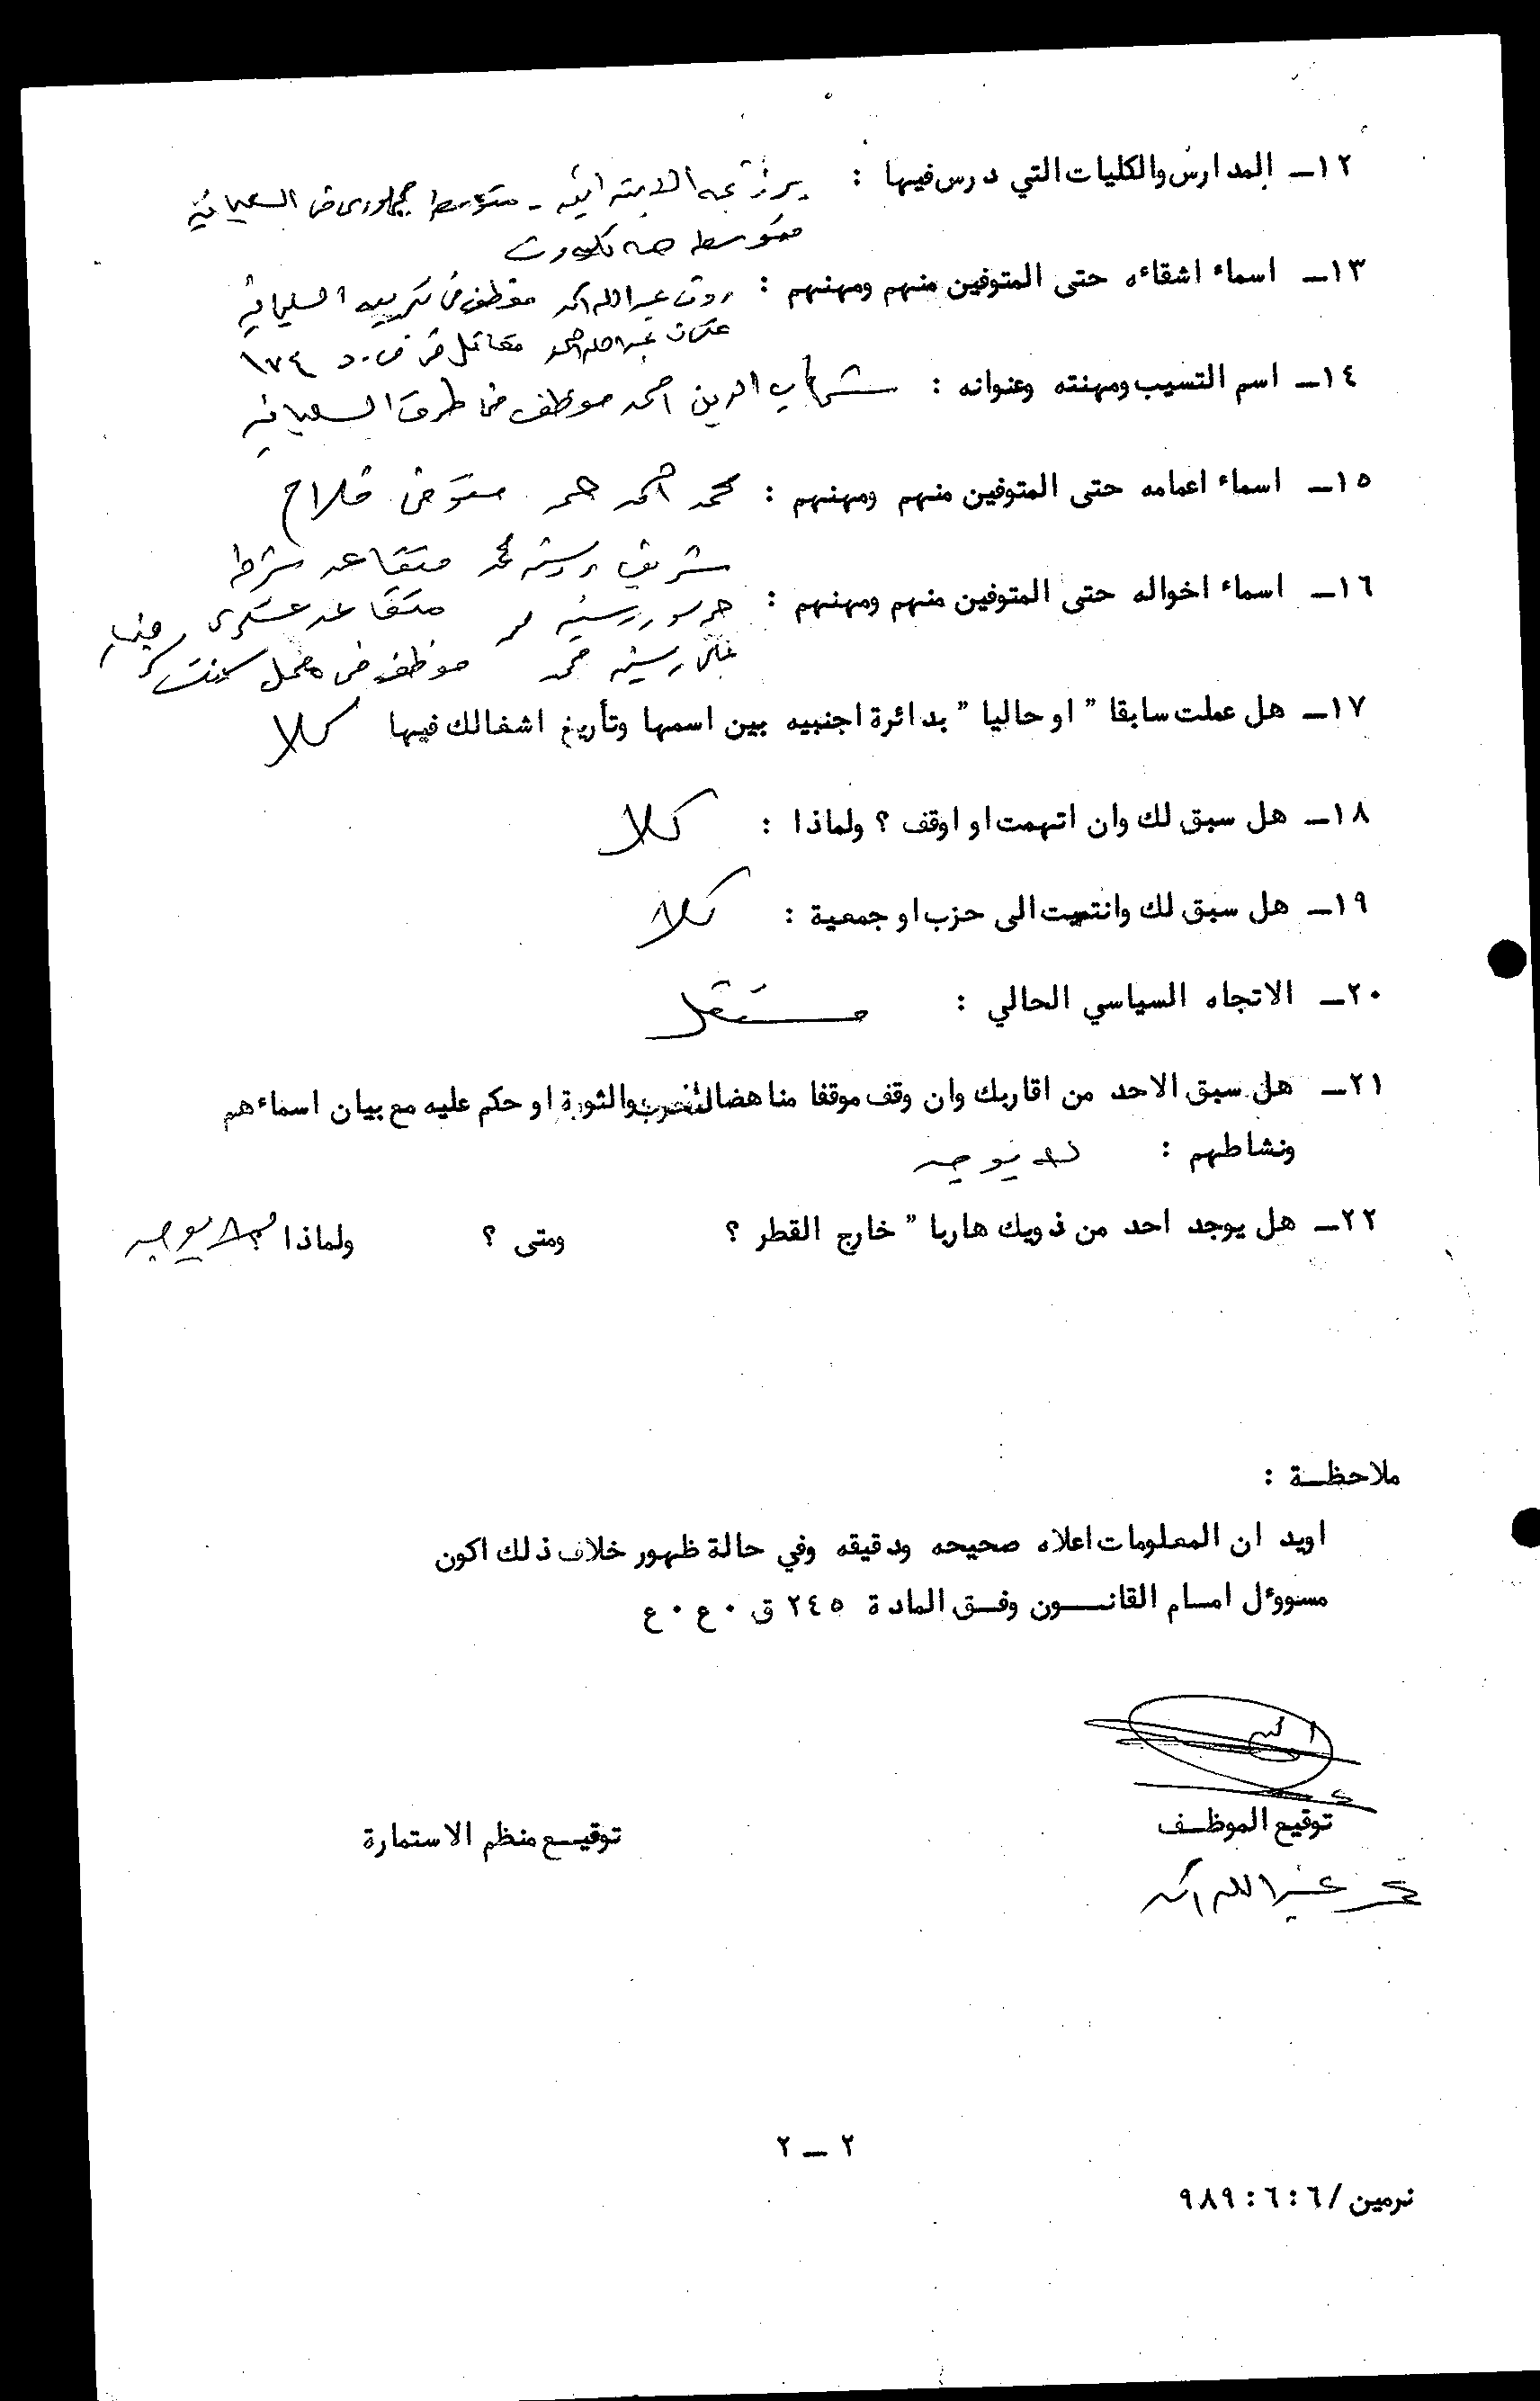 ١٢ــ المدارس والكليات التي درس فيها : الابتدائيه ــ متوسط السليمانية
متوسط
١٣ــ اسماء اشقاءه حتى المتوفين منهم ومهنهم : عبدالله احمد موظف في تربيه السليمانية
عبدالله احمد مقاتل في ف ٠ د ١٧٤
١٤ــ اسم النسيب ومهنته وعنوانه : شهاب الدين احمد موظف في طرق السليمانيه
١٥ــ اسماء اعمامه حتى المتوفين منهم ومهنهم : محمد احمد حمه متوفى فلاح
شريف محمد متقاعد شرطه
١٦ــ اسماء اخواله حتى المتوفين منهم ومهنهم : متقاعد عسكري
علي موظف في معمل سمنت
١٧ــ هل عملت سابقا " او حاليا " بدائرة اجنبيه بين اسمها وتأريخ اشغالك فيها كلا
١٨ــ هل سبق لك وان اتهمت او اوقف ؟ ولماذا : كلا
١٩ــ هل سبق لك وانتميت الى حزب او جمعية : كلا
٢٠ــ الاتجاه السياسي الحالي : مستقل
٢١ــ هل سبق الاحد من اقاربك وان وقف موقفا مناهضا للحزب والثورة او حكم عليه مع بيان اسماءهم
ونشاطهم : لا يوجد
٢٢ــ هل يوجد احد من ذويك هاربا " خارج القطر ؟ ومتى ؟ ولماذا ؟ لا يوجد
ملاحظــة :
اويد ان المعلومات اعلاه صحيحه ودقيقه وفي حالة ظهور خلاف ذلك اكون
مسوول امــام القانــــون وفــق المادة ٢٤٥ ق ٠ ع ٠ ع
توقيع الموظــف
توقيــع منظم الاستمارة
عبدالله احمد
٢ ــ ٢
نرمين / ٦ : ٦ : ٩٨٩